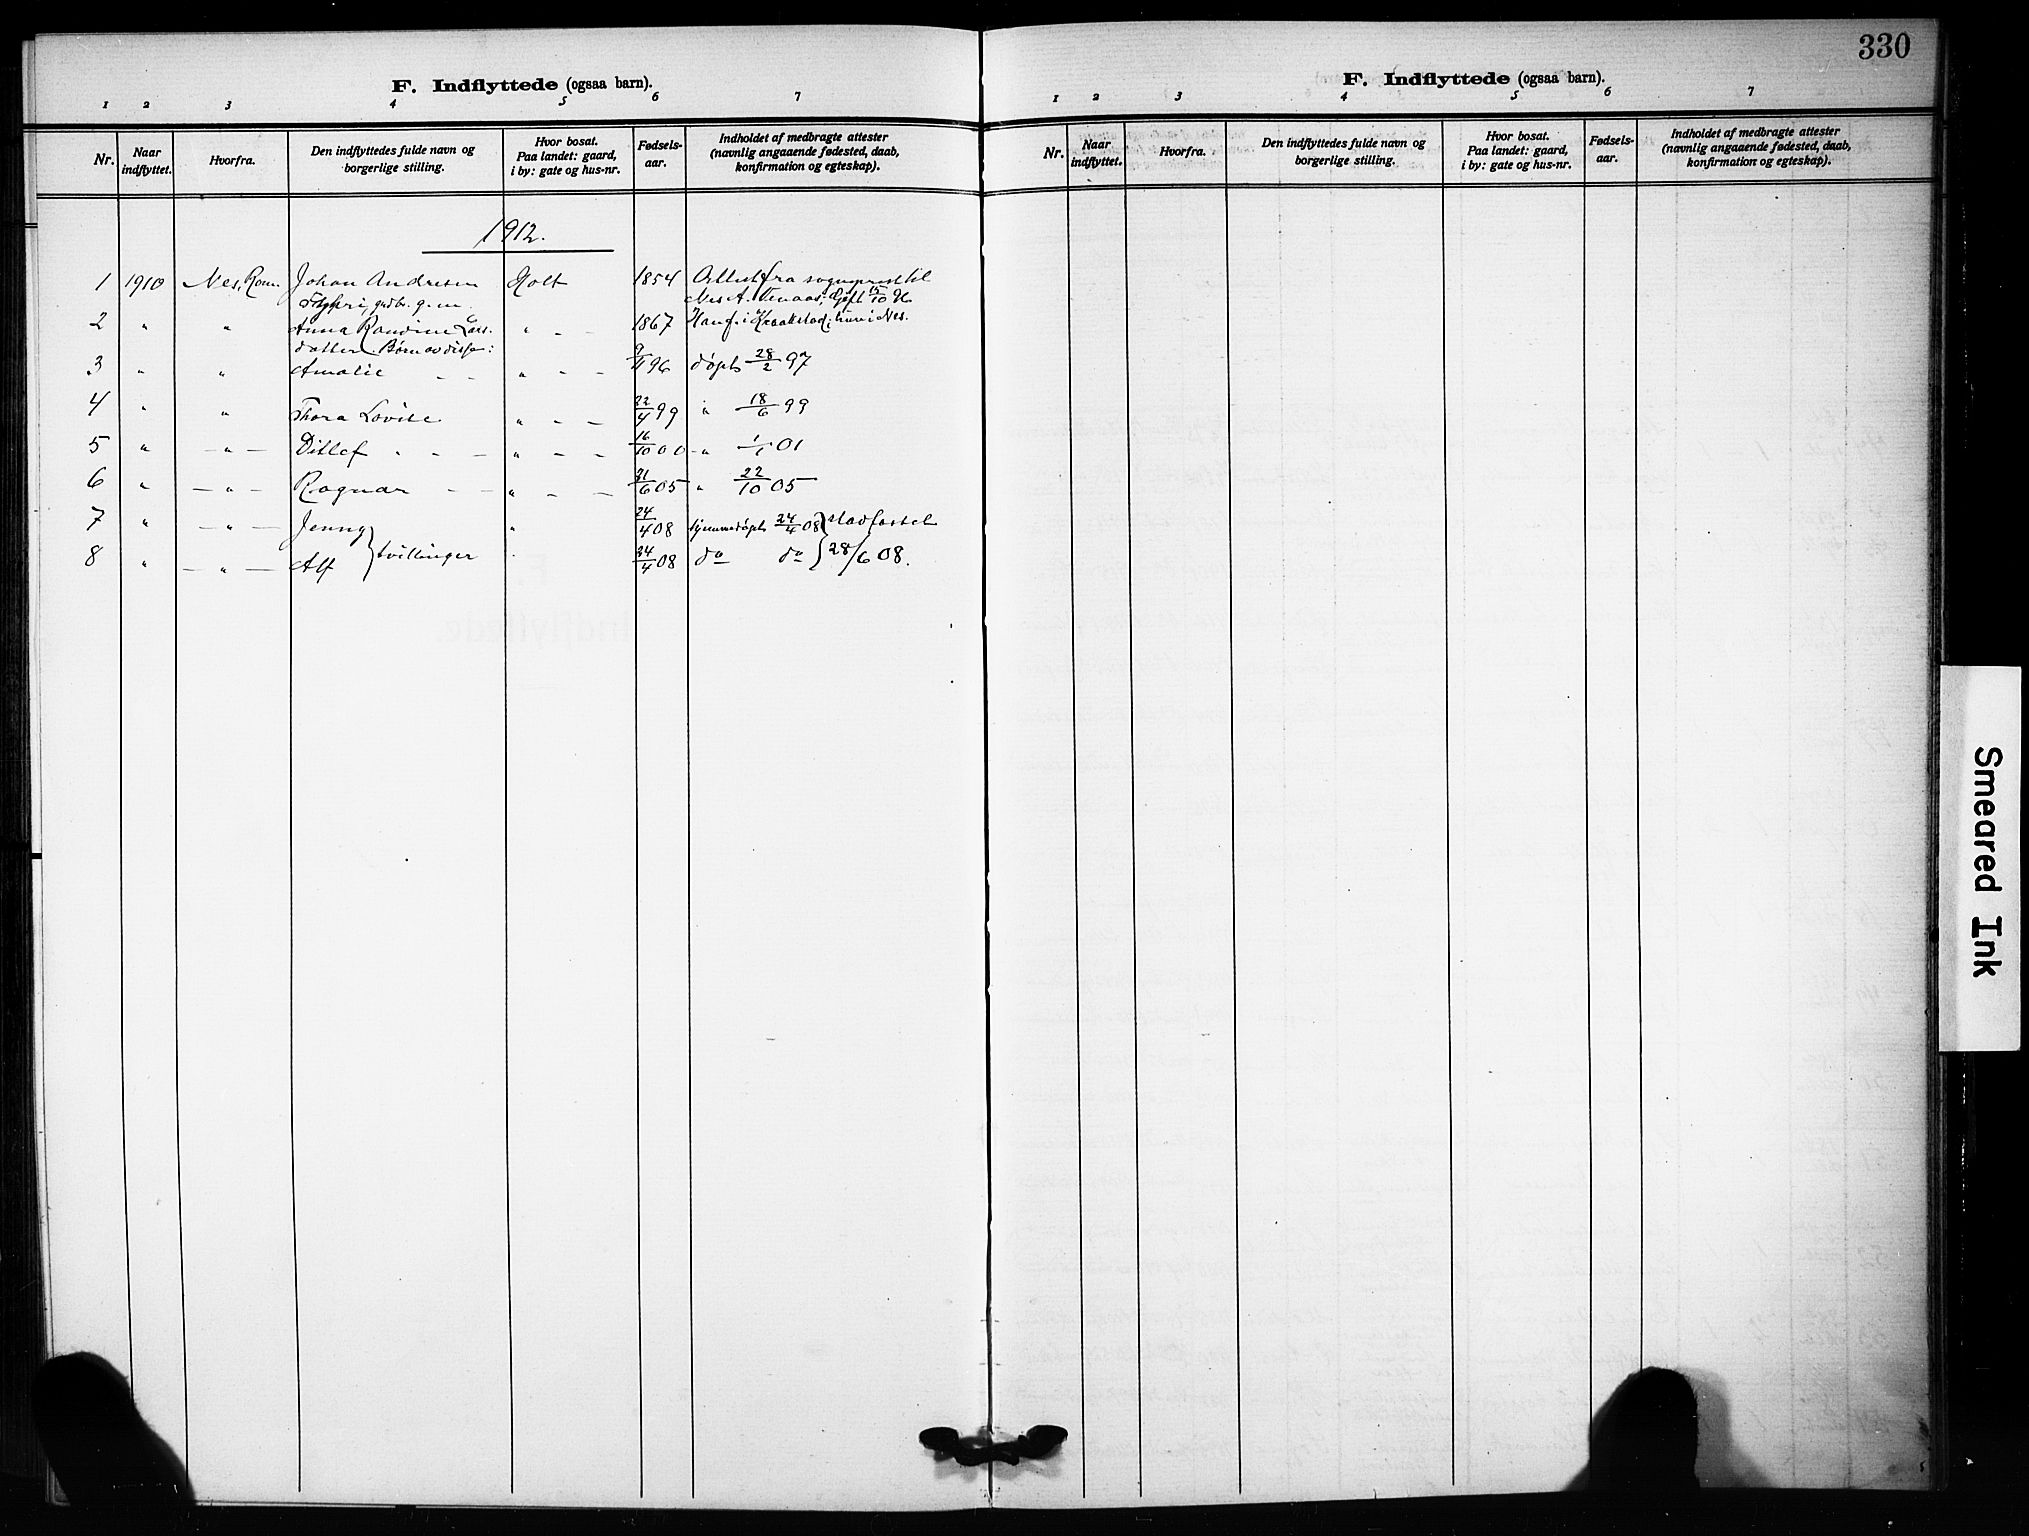 330
F. Indflyttede (ogsaa barn).
1 2 3 4 5 6 7
Nr. Naar indflyttet. Hvorfra. Den indflyttedes fulde navn og borgerlige stilling. Hvor bosat. Paa landet: gaard, i by: gate og hus-nr. Fødsels-aar. Indholdet af medbragte attester (navnlig angaaende fødested, daab, konfirmation og egteskap).
1912.
1 1910 Nes, Rom. Johan Andresen Holt 1854 Attest fra sogneprest til
gardbr. g. m. Nes A. gift 15/10
2 " " Anna Randine Lars- " - - 1867 Han f. i Kraakstad; hun i Nes.
datter. Børn av disse:
3 " " Amalie - - " - - 9/11 96 døpt 28/2 97
4 " " Thora Lovise " - - 22/4 99 " 18/6 99
5 " - " - Ditlef " - - " - - 16/10 00 - " 1/1 01
6 " - " - Ragnar - - " - - 21/6 05 " 22/10 05
7 " - " - Jenny } tvillinger " 24/4 08 hjemmedøpt 24/4 08 } stadfæstet
8 " - " - Alf 24/4 08 do do } 28/6 08.
F. Indflyttede (ogsaa barn).
1 2 3 4 5 6 7
Nr. Naar indflyttet. Hvorfra. Den indflyttedes fulde navn og borgerlige stilling. Hvor bosat. Paa landet: gaard, i by: gate og hus-nr. Fødsels-aar. Indholdet af medbragte attester (navnlig angaaende fødested, daab, konfirmation og egteskap).
Smeared Ink